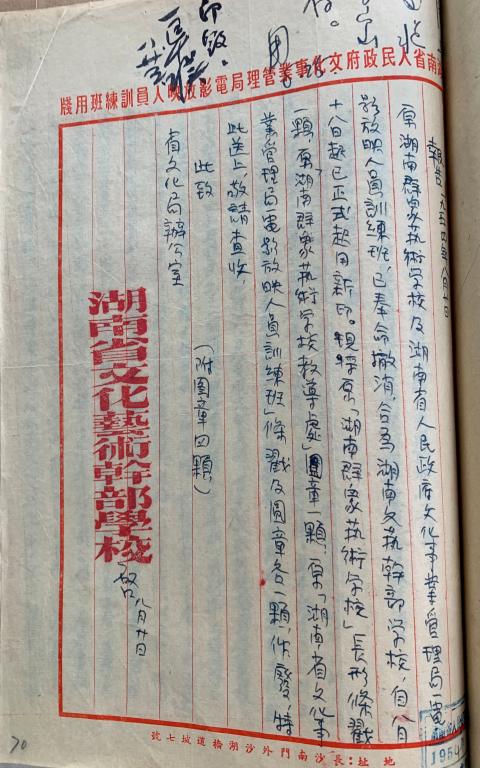 湖南省人民政府文化事業管理局電影放映人員訓練班用牋
報告 一九五四年八月廿日
原湖南群众艺術学校及湖南省人民政府文化事業管理局電
影放映人員訓練班，已奉命撤消，合為湖南文艺幹部学校，自八月
十八日起已正式起用新印。現將原「湖南群众艺術学校」長形條戳
一顆，原「湖南群众艺術学校教導處」圓章一顆，原「湖南省文化事
業管理局電影放映人員訓練班」條戳及圓章各一顆，作廢，特
此送上，敬請查收，
此致
省文化局辦公室
（附圖章四顆）
湖南省文化藝術幹部學校
啓 八月廿日
地址：長沙南門外沙湖橋道坡七號
195
70